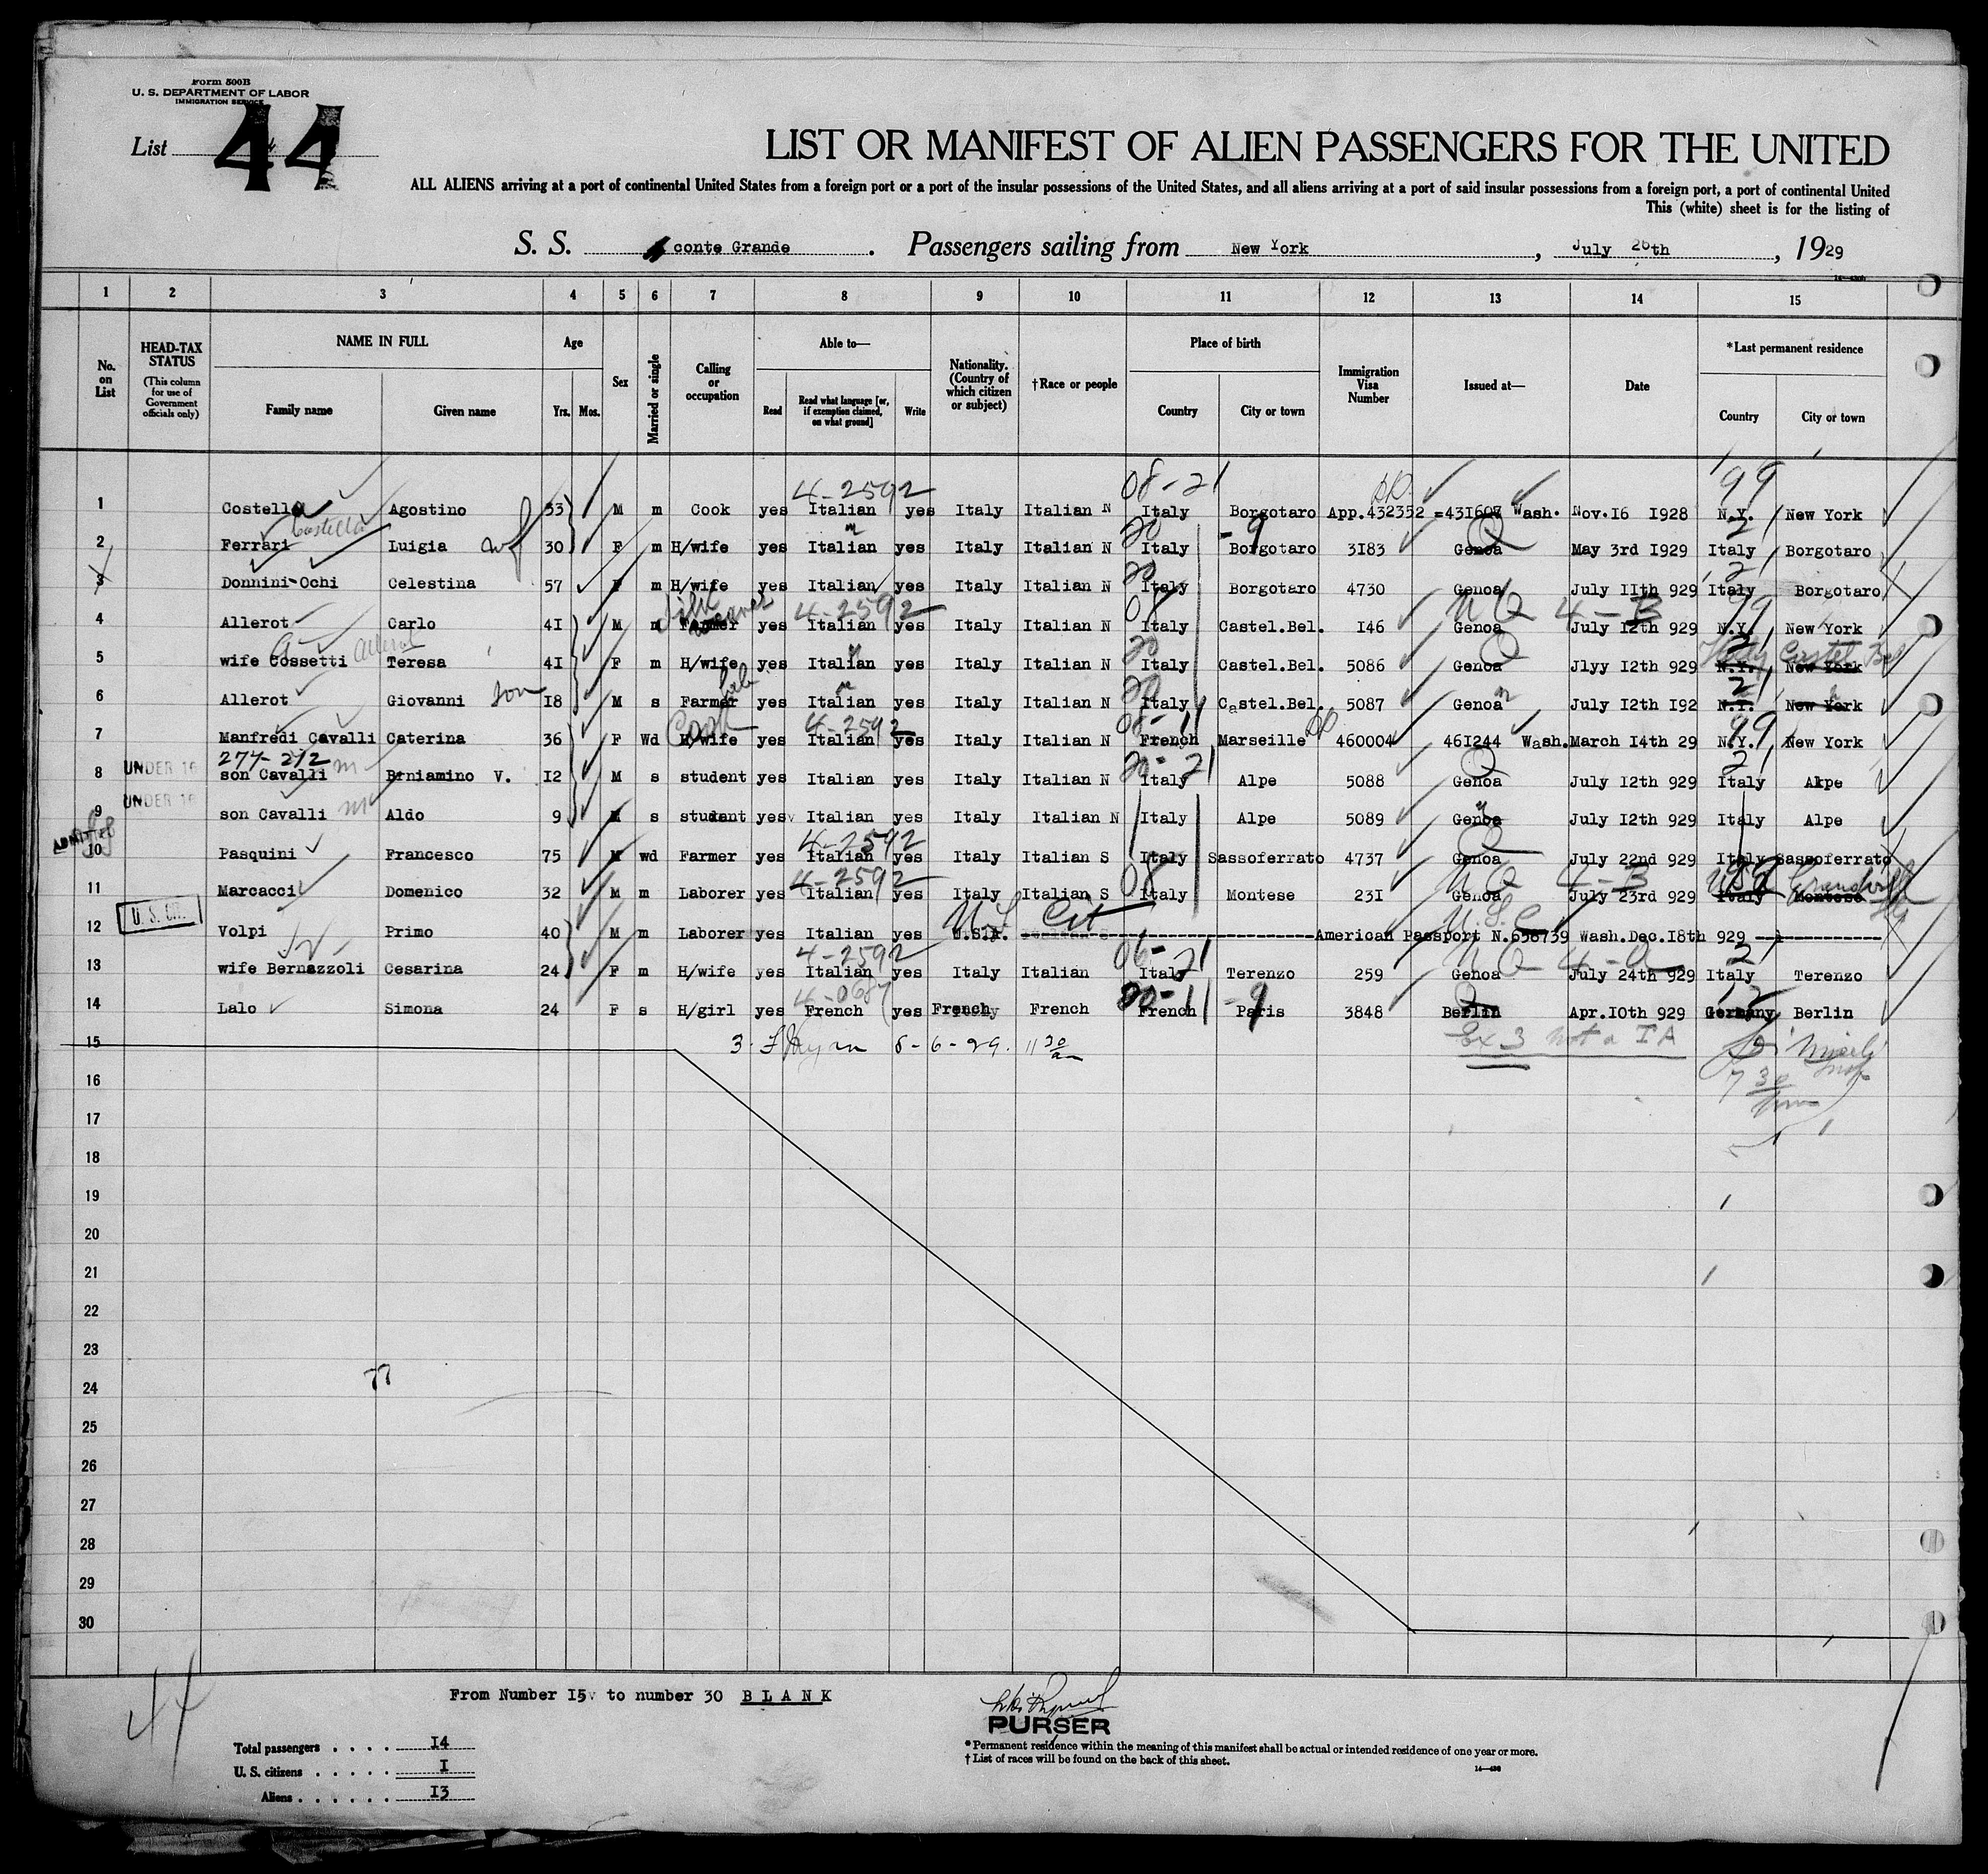 Form 500B
U. S. DEPARTMENT OF LABOR
IMMIGRATION SERVICE
List 44
LIST OR MANIFEST OF ALIEN PASSENGERS FOR THE UNITED
ALL ALIENS arriving at a port of continental United States from a foreign port or a port of the insular possessions of the United States, and all aliens arriving at a port of said insular possessions from a foreign port, a port of continental United
This (white) sheet is for the listing of
S. S. conte Grande. Passengers sailing from New York, July 26th, 1929
1 2 3 4 5 6 7 8 9 10 11 12 13 14 15
No. on List
HEAD-TAX STATUS (This column for use of Government officials only)
NAME IN FULL
Family name Given name
Age
Yrs. Mos.
Sex
Married or single
Calling or occupation
Able to—
Read Read what language [or, if exemption claimed, on what ground] Write
Nationality. (Country of which citizen or subject)
†Race or people
Place of birth
Country City or town
Immigration Visa Number
Issued at—
Date
*Last permanent residence
Country City or town
4-2592 08-21 99
1 Costella Agostino 33 M m Cook yes Italian yes Italy Italian N Italy Borgotaro App.432352 =431607 Wash. Nov.16 1928 N.Y. New York
Costella
2 Ferrari Luigia wf 30 F m H/wife yes Italian yes Italy Italian N Italy Borgotaro 3183 Genoa May 3rd 1929 Italy Borgotaro
3 Donnini-Ochi Celestina 57 F m H/wife yes Italian yes Italy Italian N Italy Borgotaro 4730 Genoa July 11th 929 Italy Borgotaro
4-2592 NQ 4-B 99
4 Allerot Carlo 41 M m Farmer yes Italian yes Italy Italian N Italy Castel.Bel. 146 Genoa July 12th 929 N.Y. New York
Allerot
5 wife Cossetti Teresa 41 F m H/wife yes Italian yes Italy Italian N Italy Castel.Bel. 5086 Genoa Jlyy 12th 929 N.Y. New York
6 Allerot Giovanni son 18 M s Farmer yes Italian yes Italy Italian N Italy Castel.Bel. 5087 Genoa July 12th 192 N.Y. New York
Cook 4-2592 08-11 99
7 Manfredi Cavalli Caterina 36 F Wd H/wife yes Italian yes Italy Italian N French Marseille 460004 461244 Wash. March 14th 29 N.Y. New York
277-212
8 UNDER 16 son Cavalli Brniamino V. 12 M s student yes Italian yes Italy Italian N Italy Alpe 5088 Genoa July 12th 929 Italy Alpe
9 UNDER 16 son Cavalli Aldo 9 M s student yes Italian yes Italy Italian N Italy Alpe 5089 Genoa July 12th 929 Italy Alpe
ADMITTED 4-2592
10 Pasquini Francesco 75 M wd Farmer yes Italian yes Italy Italian S Italy Sassoferrato 4737 Genoa July 22nd 929 Italy Sassoferrato
4-2592 NQ 4-B
11 Marcacci Domenico 32 M m Laborer yes Italian yes Italy Italian S Italy Montese 231 Genoa July 23rd 929 Italy Montese
U. S. Cit. U.S. Cit U.S.C.
12 Volpi Primo 40 M m Laborer yes Italian yes U.S.A. American Passport N.658739 Wash.Dec.18th 929
4-2592 06-21 NQ 4-a
13 wife Bernazzoli Cesarina 24 F m H/wife yes Italian yes Italy Italian Italy Terenzo 259 Genoa July 24th 929 Italy Terenzo
4-0687 20-11-9
14 Lalo Simona 24 F s H/girl yes French yes French French French Paris 3848 Berlin Apr.10th 929 Germany Berlin
15 8-6-29. 11 30 am Ex 3 not a IA
16 7 30
17
18
19
20
21
22
23
24
25
26
27
28
29
30
77
44
From Number 15 to number 30 BLANK
PURSER
Total passengers . . . . 14
U. S. citizens . . . . . 1
Aliens . . . . . . 13
*Permanent residence within the meaning of this manifest shall be actual or intended residence of one year or more.
†List of races will be found on the back of this sheet.